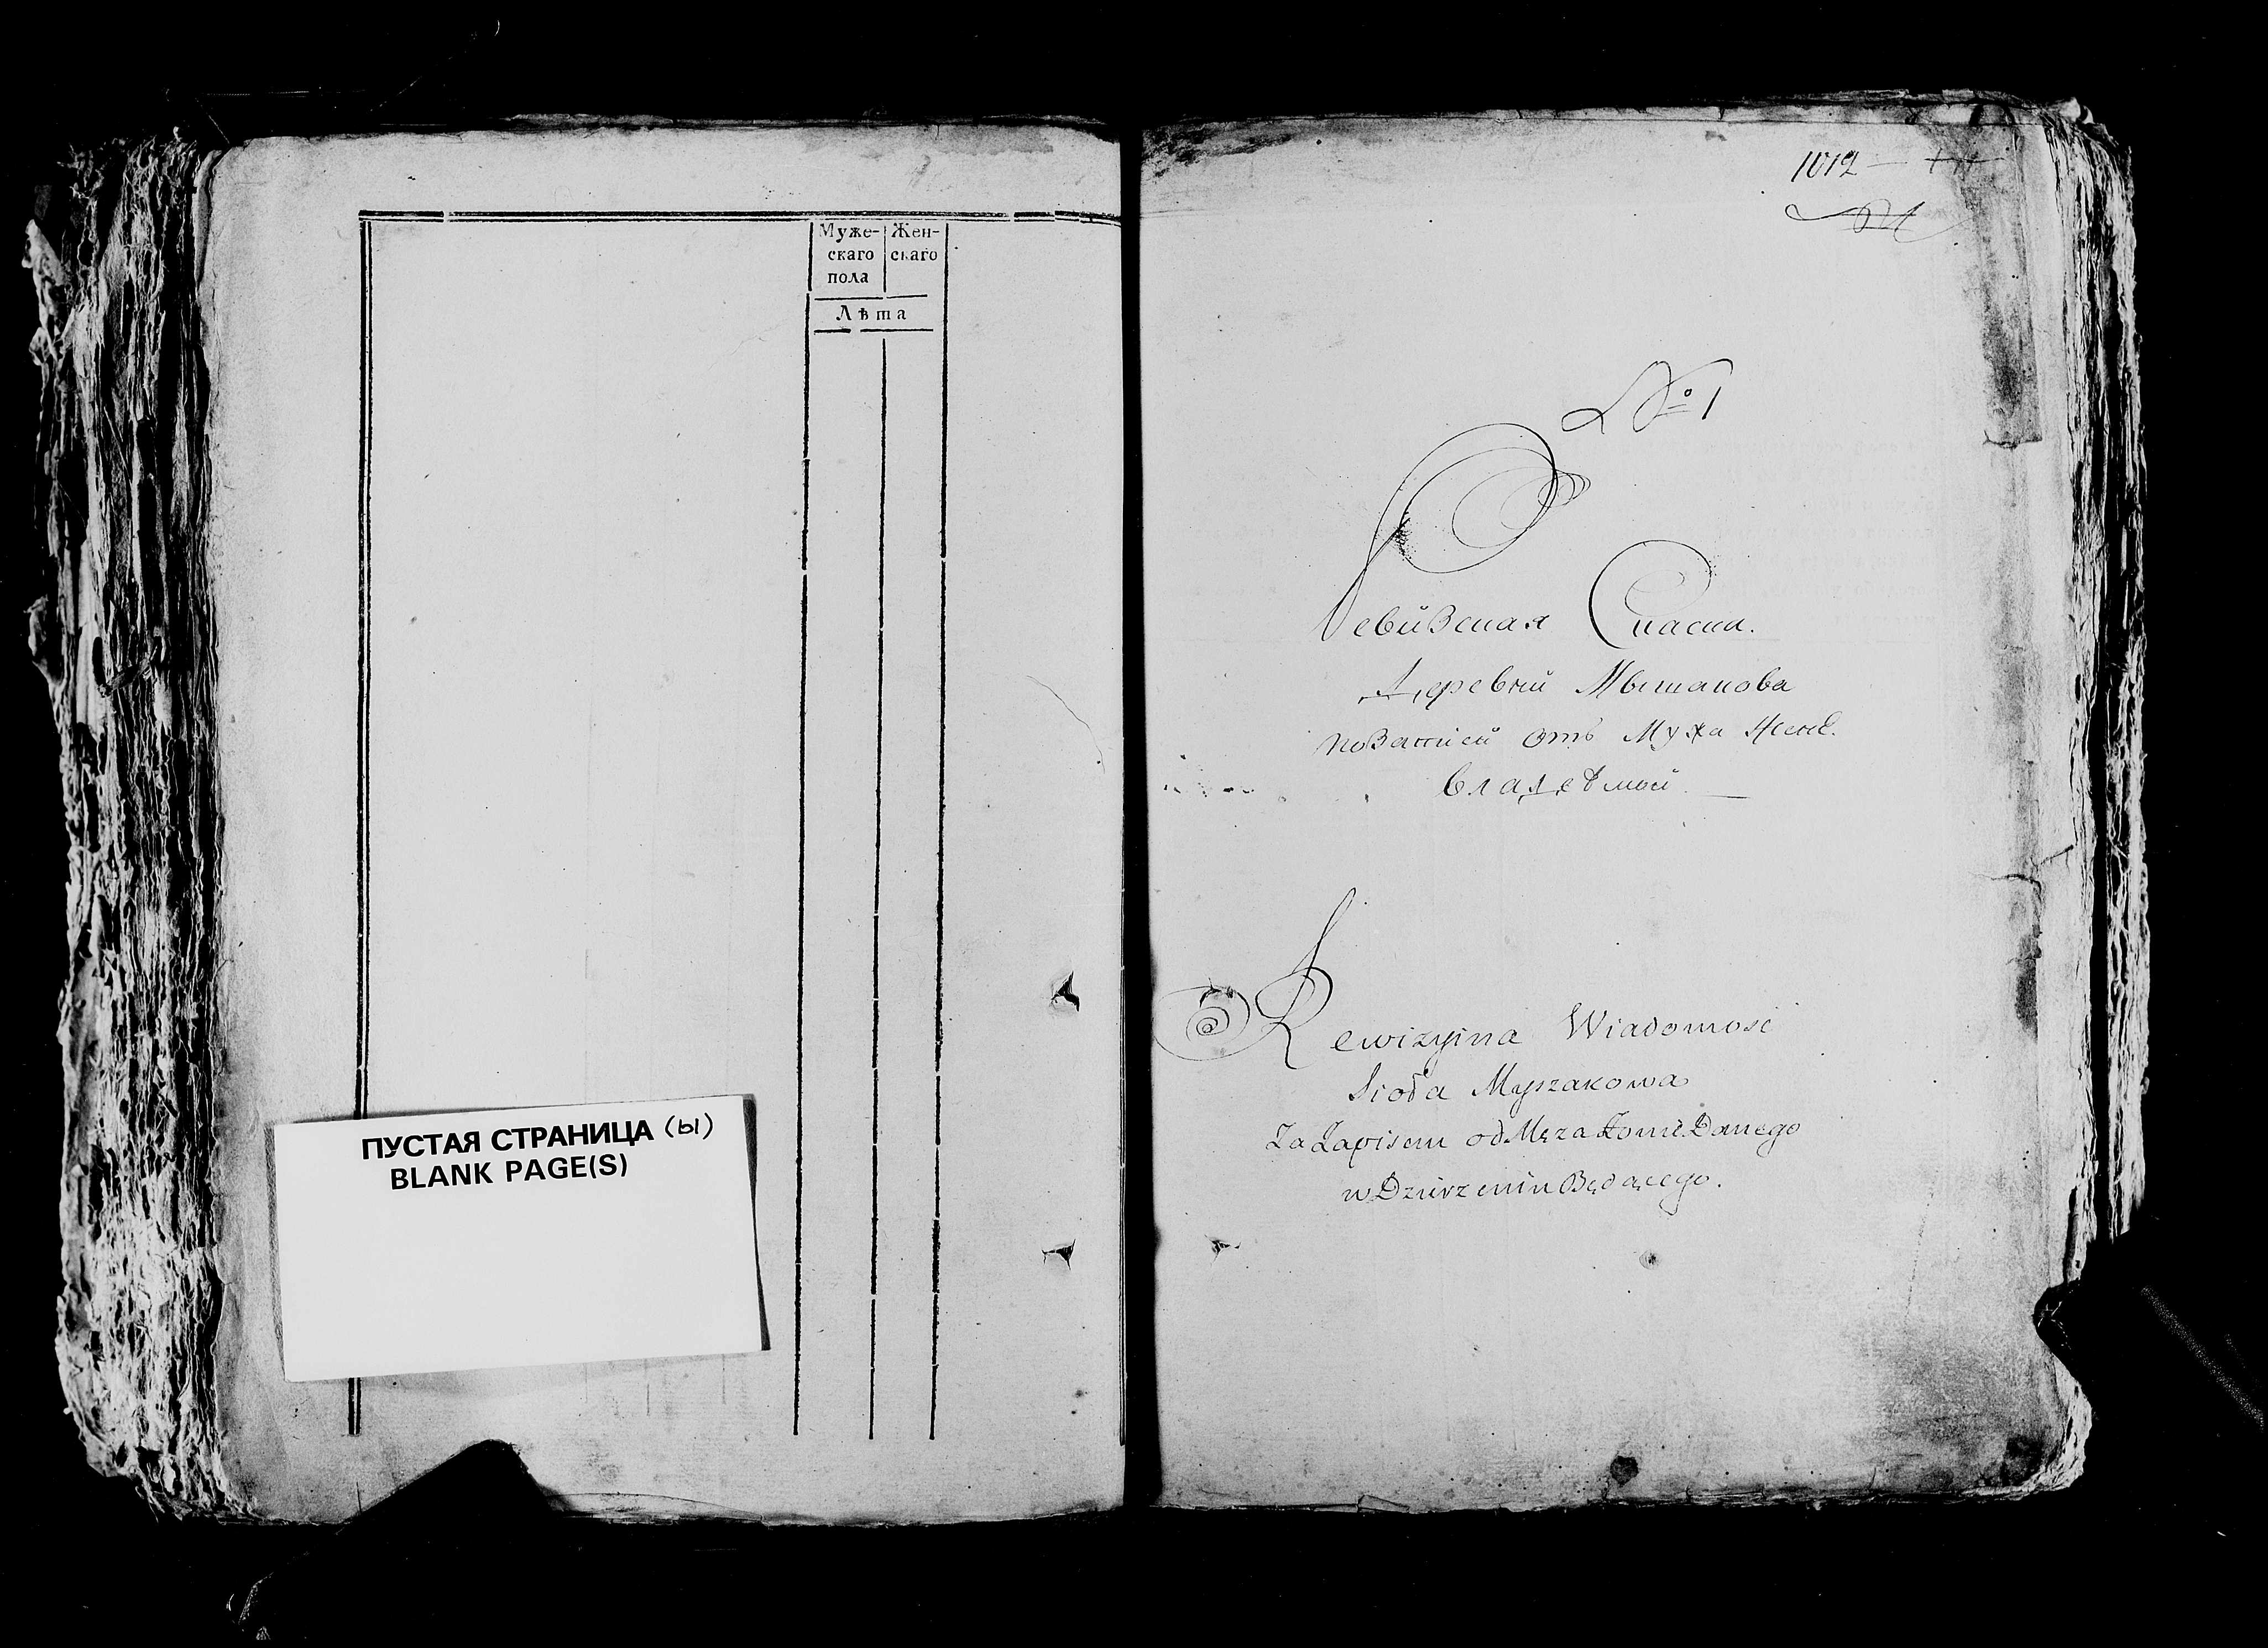 Муже-
скаго
пола
Жен-
скаго
Лѣта
ПУСТАЯ СТРАНИЦА (ы)
BLANK PAGE(S)
1012
№ 1
Ревизская Сказка.
Деревни Мышакова
по Записи отъ Мужа Женѣ
владѣмой.
Rewizyina Wiadomosć
Sioła Myszakowa
Za Zapisem od Męża Żonie Danego
w Dzierzeniu Będącego.